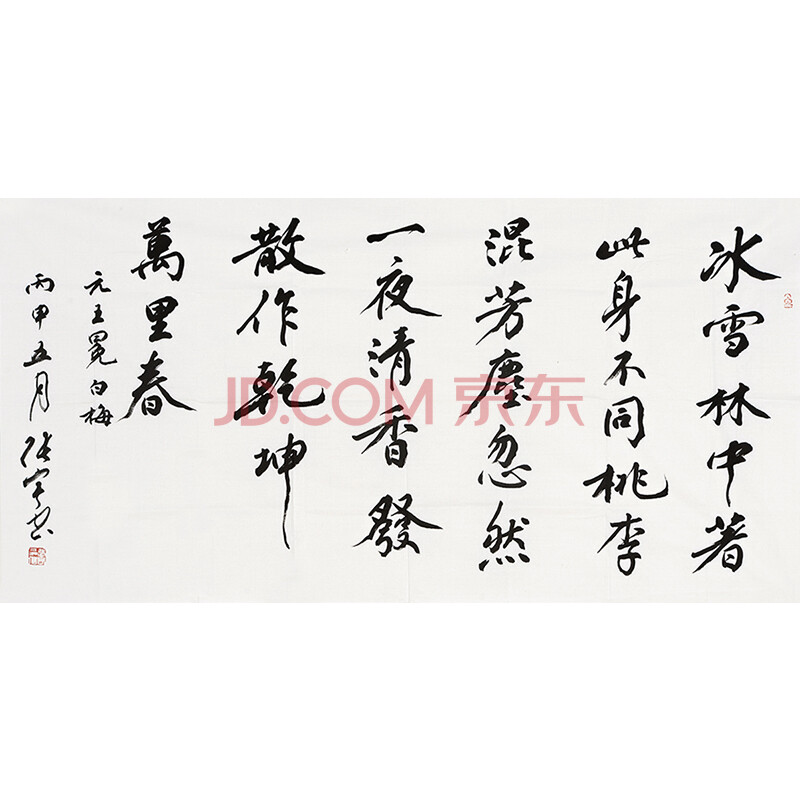 冰雪林中著
此身不同桃李
混芳塵忽然
一夜清香發
散作乾坤
萬里春
元王冕白梅
丙申五月張宇书
JD.COM 京东